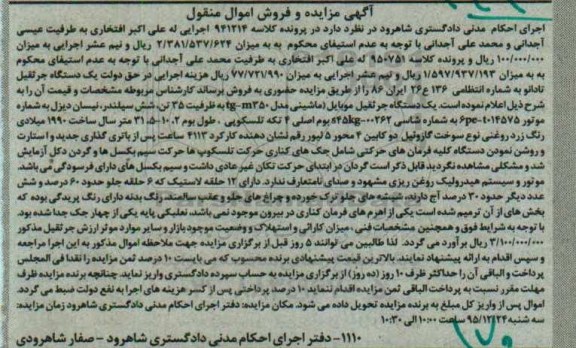 آگهی مزایده و فروش اموال منقول
اجرای احکام مدنی دادگستری شاهرود در نظرد دارد در پرونده کلاسه ۹۴۱۲۱۴ اجرایی له علی اکبر افتخاری به طرفیت عیسی
آجدانی و محمد علی آجدانی با توجه به عدم استیفای محکوم به به میزان ۲/۳۸۱/۵۳۷/۶۲۴ ریال و نیم عشر اجرایی به میزان
۱۰۰/۰۰۰/۰۰۰ ریال و پرونده کلاسه ۹۵۰۷۵۱ له علی اکبر افتخاری به طرفیت محمد علی آجدانی با توجه به عدم استیفای محکوم
به به میزان ۱/۵۹۷/۹۳۷/۱۹۳ ریال و نیم عشر اجرایی به میزان ۷۷/۷۲۱/۹۹۰ ریال هزینه اجرایی در حق دولت یک دستگاه جرثقیل
تادانو به شماره انتظامی ۱۳۶ ع ۲۶ ایران ۸۶ را از طریق مزایده حضوری به فروش برساند کارشناس مربوطه مشخصات و قیمت آن را به
شرح ذیل اعلام نموده است. یک دستگاه جرثقیل موبایل (ماشینی) مدل tg-m۳۵۰ به ظرفیت ۳۵ تن، شش سیلندر، نیسان دیزل به شماره
موتور ۶pe-t۰۱۴۵۷۵ به شماره شاسی k۴۵kg-۰۰۲۶۲ بوم اصلی ۴ تکه تلسکوپی ، طول بوم ۱۰.۲-۳۱.۵ متر سال ساخت ۱۹۹۰ میلادی
رنگ زرد روغنی نوع سوخت گازوئیل دو کابین ۴ محور ۵ لیور رقم نشان دهنده کارکرد ۴۱۱۳ ساعت پس از باتری گذاری جدید و استارت
و روشن نمودن دستگاه کلیه فرمان های حرکتی شامل جک های کناری حرکت تلسکوپ ها حرکت سیم بکسل ها و گردن دکل آزمایش
شد و مشکلی مشاهده نگردید قابل ذکر است گردان در ابتدای حرکت تکان غیر عادی داشت و سیم بکسل های دارای فرسودگی می باشد.
موتور و سیستم هیدرولیک روغن ریزی مشهود و صدای نامتعارف ندارد. دارای ۱۲ حلقه لاستیک که ۶ حلقه جلو حدود ۶۰ درصد و شش
عدد دیگر حدود ۳۰ درصد آج دارند. شیشه های جلو ترک خورده و چراغ های جلو و عقب سالمند. رنگ بدنه دارای رنگ پریدگی بوده که
بخش های از آن ترمیم شده است یکی از اهرم های فرمان کناری در بیرون موجود نمی باشد، نعلبکی پایه یکی از چهار جک جدا شده بود.
با توجه به شرایط فوق و همچنین مشخصات فنی ، میزان کارائی و استهلاک و وضعیت موجود بازار و سایر موارد موثر ارزش جرثقیل مذکور
۳/۱۰۰/۰۰۰/۰۰۰ ریال برآورد می گردد. لذا طالبین می توانند ۵ روز قبل از برگزاری مزایده جهت ملاحظه اموال مذکور به این اجرا مراجعه
و سپس اقدام به ارائه پیشنهاد نمایند. بالاترین قیمت پیشنهادی برنده محسوب که می بایست ۱۰ درصد ثمن مزایده را نقدا فی المجلس
پرداخت و الباقی آن را حداکثر ظرف ۱۰ روز (ده روز) از برگزاری مزایده به حساب سپرده دادگستری واریز نماید. چنانچه برنده مزایده ظرف
مهلت مقرر نسبت به پرداخت الباقی ثمن مزایده اقدام ننماید ۱۰ درصد پرداختی پس از کسر هزینه های اجرا به نفع دولت ضبط می گردد.
اموال پس از واریز کل مبلغ به برنده مزایده تحویل داده می شود. مکان مزایده: دفتر اجرای احکام مدنی دادگستری شاهرود زمان مزایده:
سه شنبه ۹۵/۱۲/۲۴ ساعت ۱۰:۰۰ الی ۱۰:۳۰
۱۱۱۰- دفتر اجرای احکام مدنی دادگستری شاهرود - صفار شاهرودی